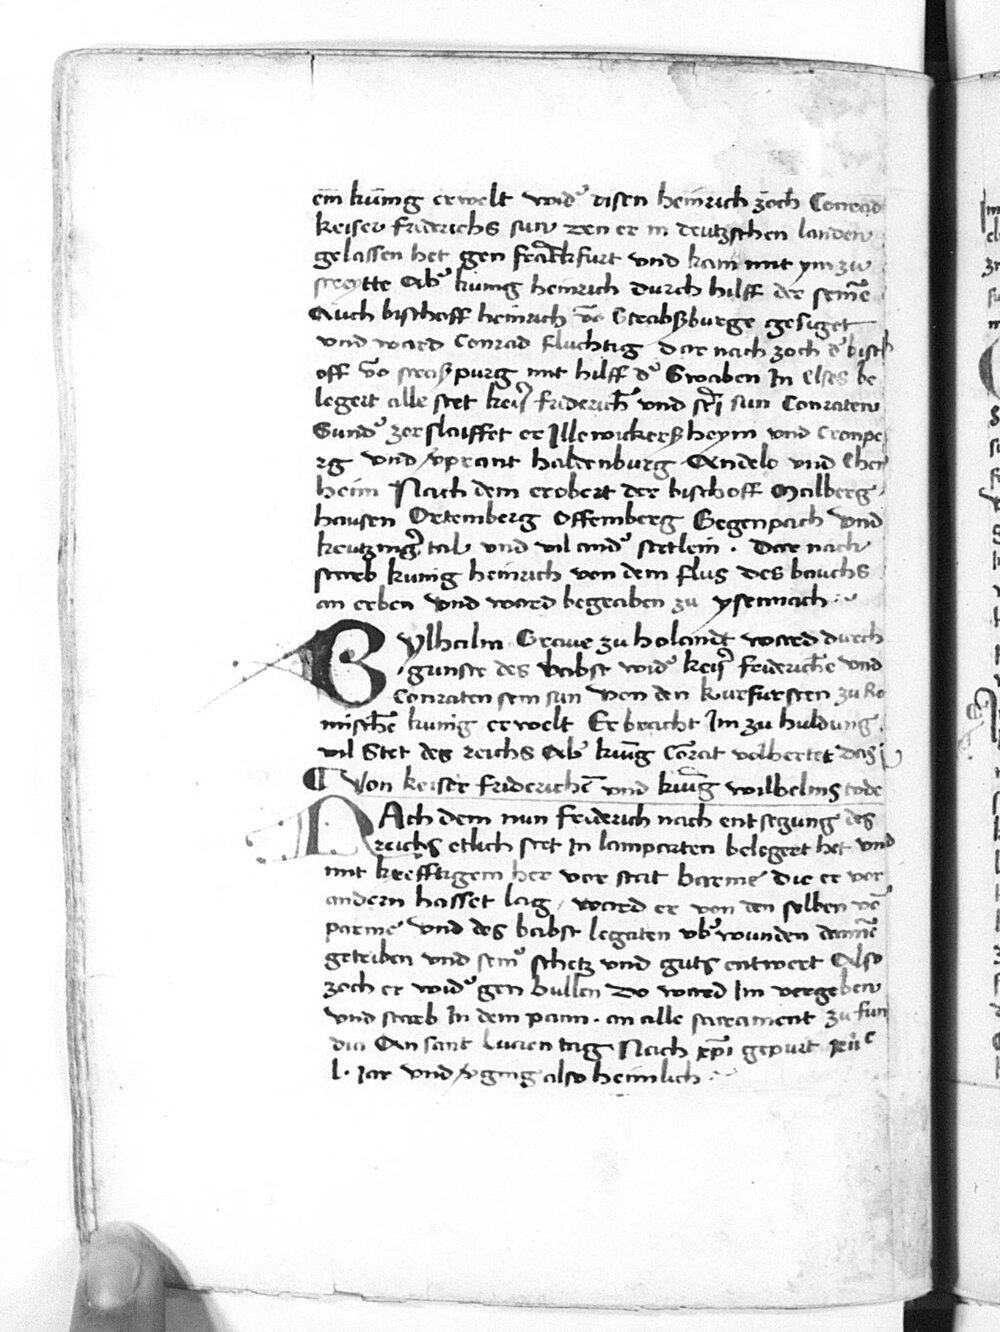 ein kunig erwelt wider disen heinrich zoch Conrad
keiser friderichs sun den er in deutzschen landen
gelassen het gen franckfurt vnd kam mit ym zu
streytte Aber kunig heinrich durch hilff der seinen
Auch bischoff heinrich von Straßburge gesiget
vnd ward Conrad fluchtig dar nach zoch der bisch
off von straßpurg mit hilff der Swaben In elses be
legert alle stet keiser friderichs vnd seins sun Conraten
Sunder zerslaiffet er Illewickerßheym vnd Cronpe
rg vnd verprant haldenburg Andelo vnd Ehen
heim Nach dem erobert der bischoff Malberg
hausen Ortemberg Offemberg Gegenpach vnd
kentzinger tal vnd vil ander stetlein · Dar nach
starb kunig heinrich von dem flus des bauchs
an erben vnd ward begraben zu ysennach
Wylhalm Grave zu holandt ward durch
gunste des babst wider keiser friderichen vnd
Conraten sein sun von den kurfursten zu Ro
mischen kunig erwelt Er bracht Im zu huldung
vil Stet des reichs Aber kunig Conrat volhertet das
Von keiser friderichen vnd kunig wilhelms tode
NAch dem nun friderich nach entsegung des
reichs etlich stet In lamparten belegert het vnd
mit krefftigem her vor stat parme die er vor
andern hasset lag ward er von den selben von
parme vnd des babst legaten vber wunden dannen
getriben vnd seiner schetz vnd guts entwert Also
zoch er wider gen pullen Do ward Im vergeben
vnd starb In dem pann · an alle sacrament zu fun
dia An sant Lucien tag Nach xpi gepurt xiic
l · Jar vnd verging also heimlich